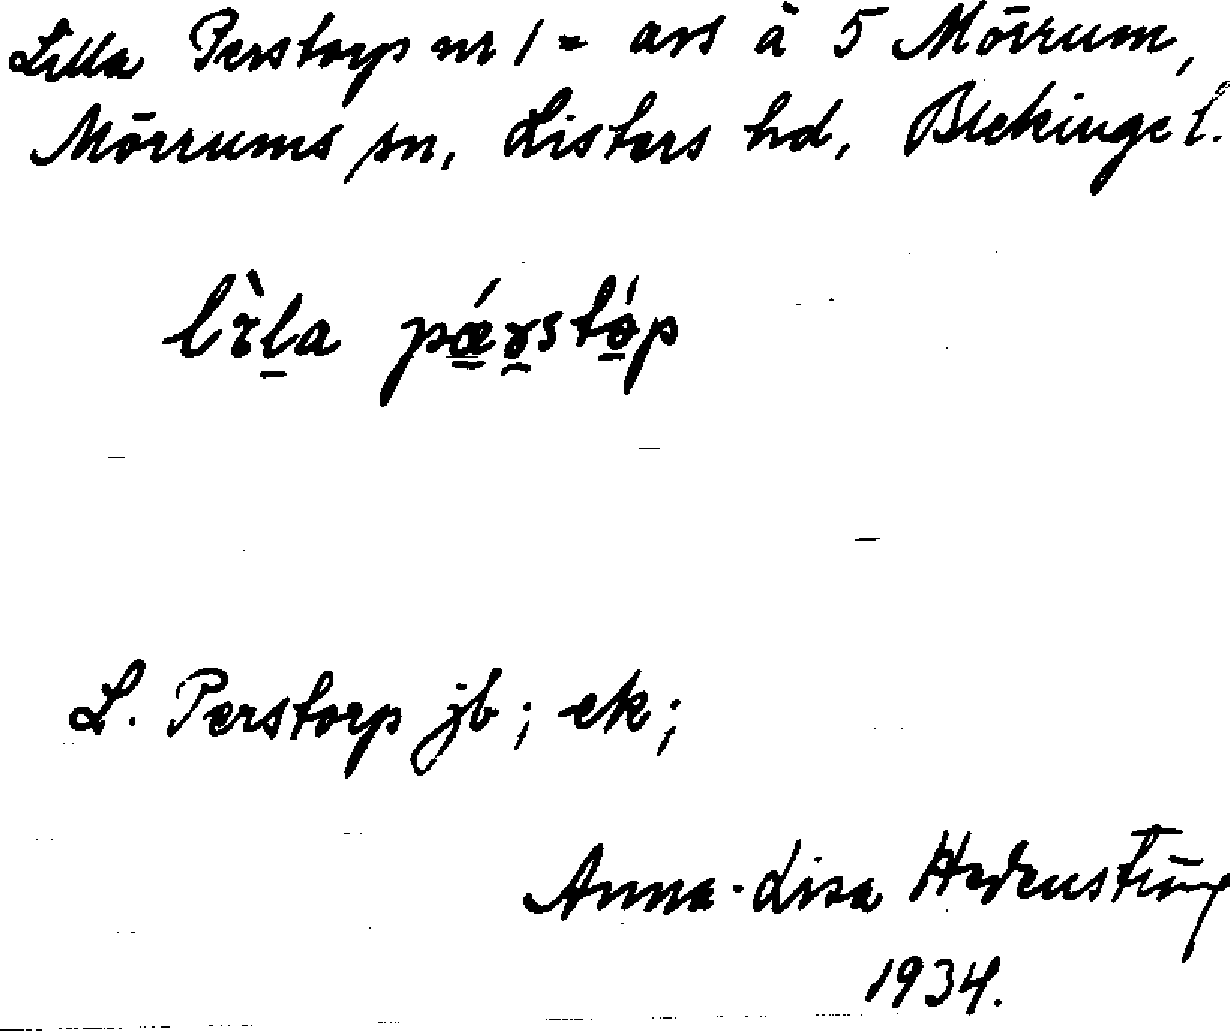 Lilla Perstorp nr 1 = avs à 5 Mörrum,
Mörrums sn, Listers hd, Blekinge l.
L. Perstorp jb; ek;
Anna-Lisa
1934.